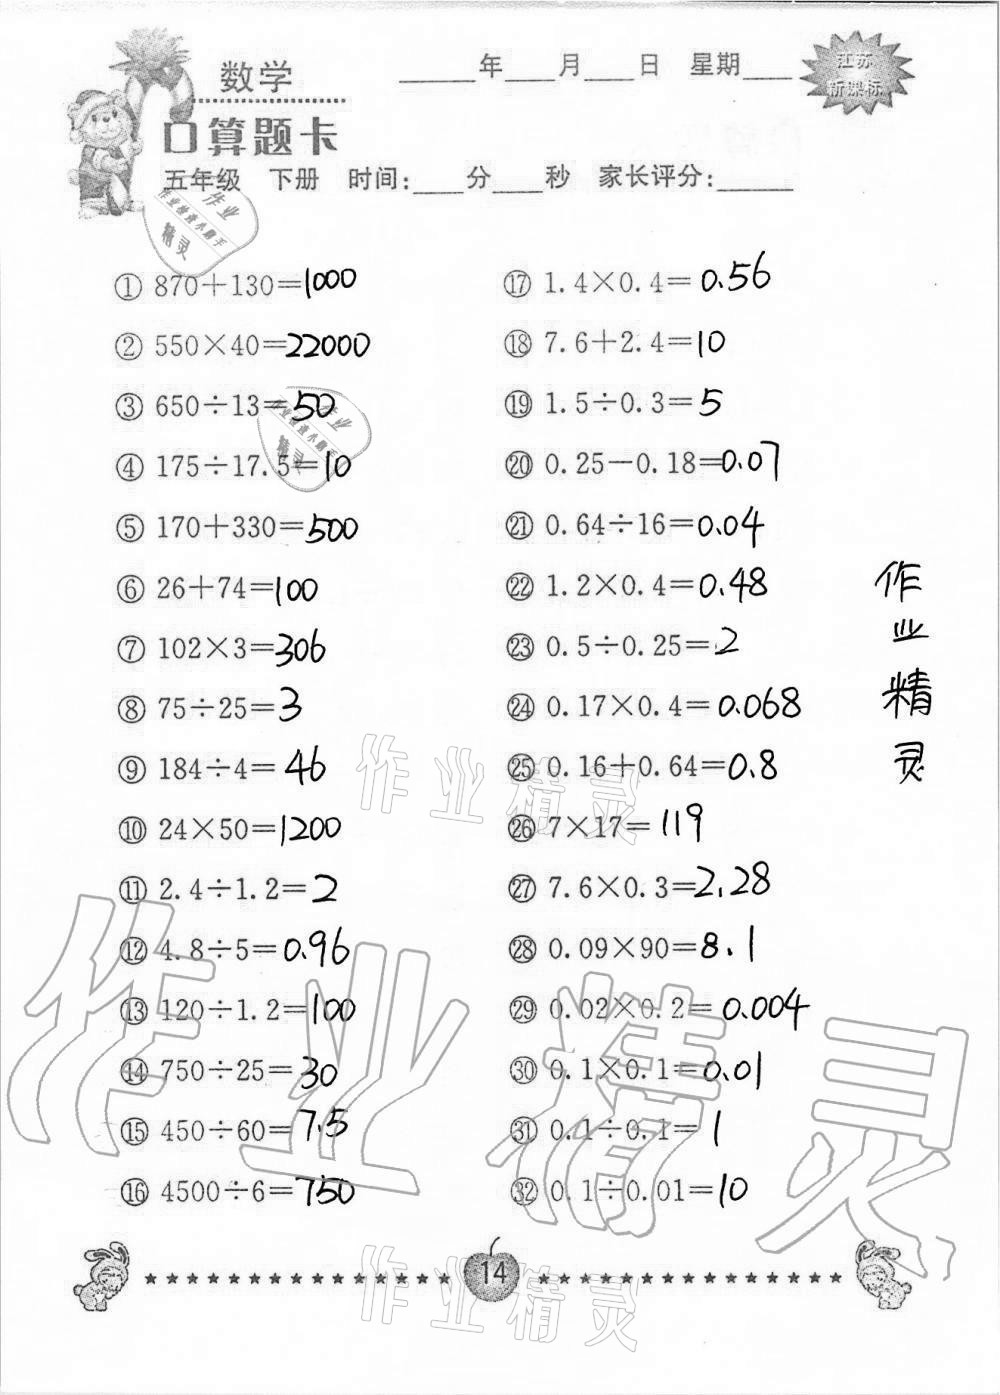 数学
____年____月____日 星期____
江苏
新课标
口算题卡
五年级 下册 时间:____分____秒 家长评分:____
作业
作业检查小助手
精灵
① 870+130=1000
② 550×40=22000
③ 650÷13=50
作业
作业检查小助手
精灵
④ 175÷17.5=10
⑤ 170+330=500
⑥ 26+74=100
⑦ 102×3=306
⑧ 75÷25=3
⑨ 184÷4=46
⑩ 24×50=1200
⑪ 2.4÷1.2=2
⑫ 4.8÷5=0.96
⑬ 120÷1.2=100
⑭ 750÷25=30
⑮ 450÷60=7.5
⑯ 4500÷6=750
⑰ 1.4×0.4=0.56
⑱ 7.6+2.4=10
⑲ 1.5÷0.3=5
⑳ 0.25-0.18=0.07
㉑ 0.64÷16=0.04
㉒ 1.2×0.4=0.48
㉓ 0.5÷0.25=2
㉔ 0.17×0.4=0.068
㉕ 0.16+0.64=0.8
㉖ 7×17=119
㉗ 7.6×0.3=2.28
㉘ 0.09×90=8.1
㉙ 0.02×0.2=0.004
㉚ 0.1×0.1=0.01
㉛ 0.1÷0.1=1
㉜ 0.1÷0.01=10
作
业
精
灵
作业精灵
作业精灵
14
作业精灵